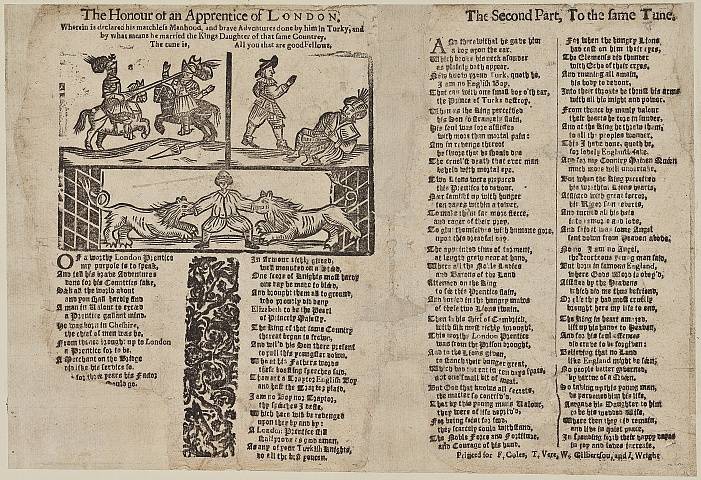 The Honour of an Apprentice of LONDON.
Wherein is declared his matchless Manhood, and brave Adventures done by him in Turky, and
by what means he married the Kings Daughter of that same Countrey.
The tune is, All you that are good Fellows.
OF a worthy London Prentice
my purpose is to speak,
And tell his brave Adventures
done for his Countries sake,
Seek all the world about
and you shall hardly find
A man in Valour to exceed
a Prentice gallant mind.
He was born in Cheshire,
the chief of men was he,
From thence brought up to London
a Prentice for to be.
A Merchant on the Bridge
did like his service so,
for three years his Factor
should go.
In Armour richly gilded,
well mounted on a steed,
One score of Knights most hardy
one day he made to bleed,
And brought them all to ground,
who proudly did deny
Elizabeth to be the Pearl
of Princely Majesty.
The King of that same Country
thereat began to frown,
And will'd his Son there present
to pull this youngster down,
Who at his Fathers words
these boasting speeches said,
Thou art a Traytor English Boy
and hast the Traytor plaid,
I am no Boy nor Traytor,
thy speeches I defie,
Which here will be revenged
upon thee by and by:
A London Prentice still
shall prove as good a man,
As any of your Turkish Knights,
do all the best you can.
The Second Part, To the same Tune.
ANd therewithal he gave him
a box upon the ear,
Which broke his neck asunder
as plainly doth appear.
Now know proud Turk, quoth he,
I am no English Boy,
That can with one small box o'th ear,
the Prince of Turks destroy.
When as the King perceived
his Son so strangely slain,
His soul was sore afflicted
with more than mortal pain:
And in revenge thereof
he swore that he should dye
The cruel'st death that ever man
beheld with mortal eye.
Two Lions were prepared
this Prentice to devour,
Near famisht up with hunger
ten dayes within a tower,
To make them far more fierce,
and eager of their prey,
To glut themselves with humane gore,
upon this dreadful day.
The appointed time of torment,
at length grew near at hand,
Where all the Noble Ladies
and Barons of the Land
Attended on the King
to see this Prentice slain,
And buried in the hungry maws
of these two Lions twain.
Then in his Shirt of Cambrick,
with silk most richly wrought,
This worthy London Prentice
was from the Prison brought,
And to the Lions given,
to stanch their hunger great,
Which had not eat in ten days space,
not one small bit of meat.
But God that knows all secrets,
the matter so contriv'd,
That by this young mans Valour,
they were of life depriv'd;
For being faint for food,
they scarcely could withstand,
The Noble Force and Fortitude,
and Courage of his hand.
For when the hungry Lions
had cast on him their eyes,
The Elements did thunder
with Echo of their cries,
And running all amain,
his body to devour,
Into their throats he thrust his arms
with all his might and power.
From thence by manly valour
their hearts he tore in sunder,
And at the King he threw them,
to all the peoples wonder,
This I have done, quoth he,
for lovely Englands sake,
And for my Country Maiden Queen
much more will undertake.
But when the King perceived
his wrathful Lions hearts,
Afflicted with great terror,
his Rigor soon reverts,
And turned all his hate
into remorse and love,
And said it was some Angel
sent down from Heaven above.
No no, I am no Angel,
the courteous young man said,
But born in famous England,
where Gods Word is obey'd,
Assisted by the Heavens
which did me thus befriend,
Or else they had most cruelly
brought here my life to end,
The King in heart amazed,
lift up his hands to Heaven,
And for his foul offences
did crave to be forgiven:
Believing that no Land
like England might be seen,
No people better governed,
by vertue of a Queen.
So taking up this young man,
he pardoned him his life,
And gave his Daughter to him
to be his wedded Wife,
Where then they did remain,
and live in quiet peace,
In spending forth their happy dayes
in joy and loves increase.
Printed for F. Coles, T. Vere, W. Gilbertson, and J. Wright